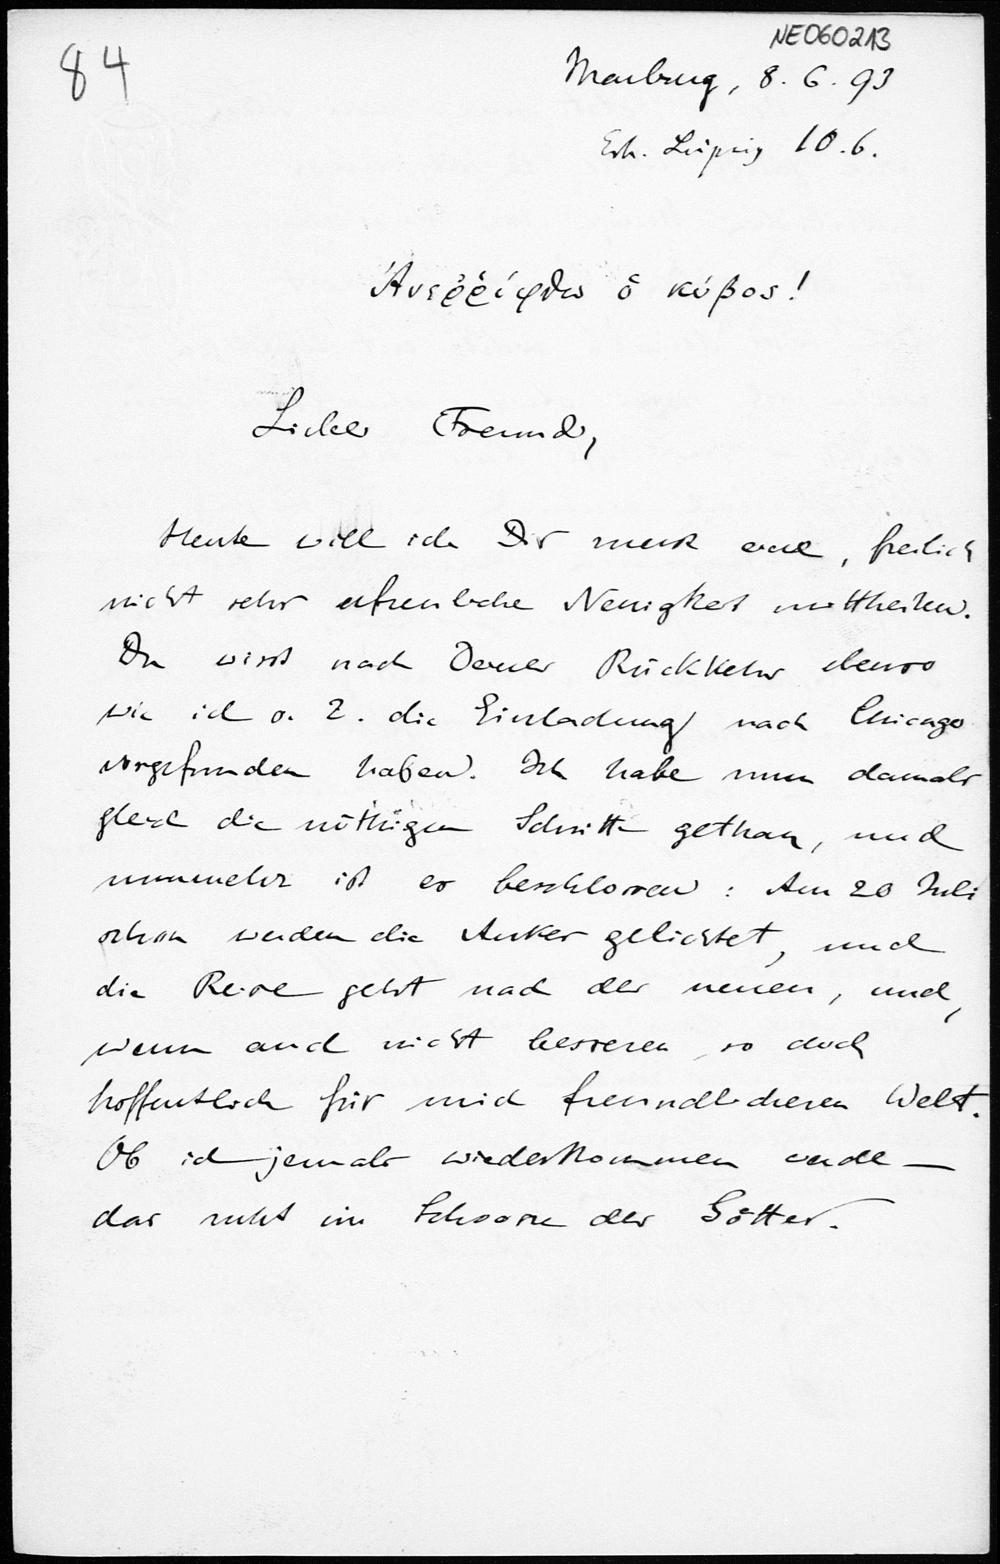 NE060213
84
Marburg, 8. 6. 93
Erh. Leipzig 10.6.
Ἀνεῤῥίφθω ὁ κύβος!
Lieber Freund,
Heute will ich Dir nur eine, freilich
nicht sehr erfreuliche Neuigkeit mittheilen.
Du wirst nach Deiner Rückkehr ebenso
wie ich s. Z. die Einladung nach Chicago
vorgefunden haben. Ich habe nun damals
gleich die nöthigen Schritte gethan, und
nunmehr ist es beschlossen: Am 20 Juli
schon werden die Anker gelichtet, und
die Reise geht nach der neuen, und,
wenn auch nicht besseren so doch
hoffentlich für mich freundlicheren Welt.
Ob ich jemals wiederkommen werde —
das ruht im Schoosse der Götter.